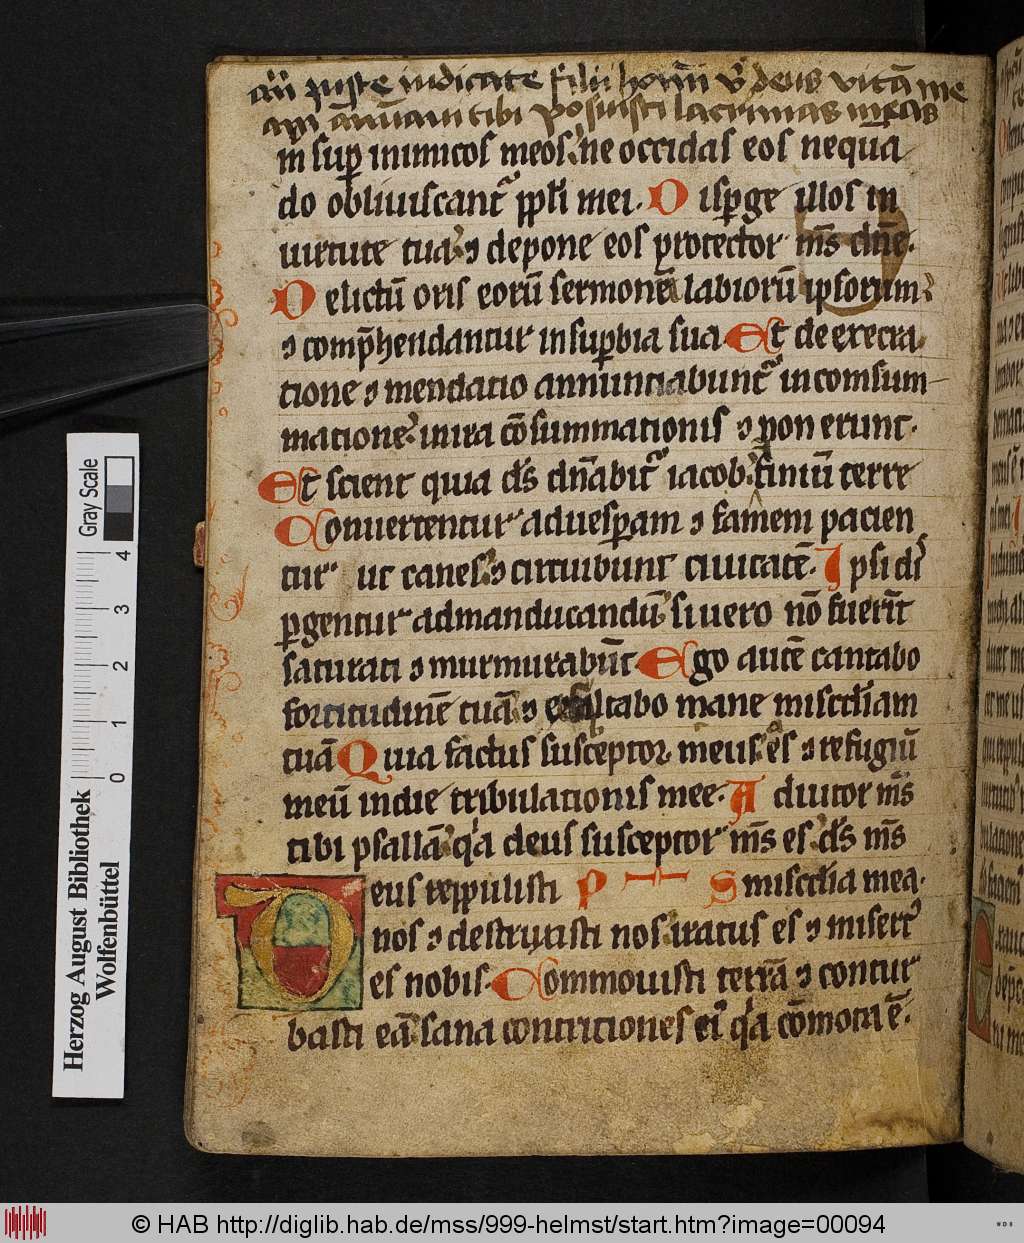 añ Juste iudicate filij homī v̄s deus vitā me
am añūciaui tibi posuisti lacrimas meas
m suꝑ inimicos meos. ne occidas eos nequā
do obliuiscant᷑ ppłi mei. Disꝑge illos in
uirtute tua ⁊ depone eos protector m̄s dn̄e.
Delictū oris eorū sermonē labiorū ipsorum.
⁊ comp̄hendantur in suꝑbia sua. Et de execra
tione ⁊ mendatio annuntiabunt᷑ in comsum-
matione. in ira cōsummationis ⁊ non erunt.
Et scient quia ds̄ dn̄abit᷑ iacob. ⁊ finiū terre
Conuertentur ad uesꝑam ⁊ famem pacien
tur ut canes. ⁊ circuibunt ciuitatē. Ipsi dis
ꝑgentur ad manducandū si uero nō fuerīt
saturati ⁊ murmurabūt Ego autē cantabo
fortitudinē tuā ⁊ exsultabo mane misc̄diam
tuā Quia factus susceptor meus es ⁊ refugiū
meū in die tribulationis mee. Adiutor m̄s
tibi psallā qͣa deus susceptor m̄s es. ds̄ m̄s
Deus reppulisti P S misc̄dia mea.
nos ⁊ destruxisti nos. iratus es ⁊ misert᷑
es nobis. Commouisti terrā ⁊ contur
basti eā. sana contritiones ei᷒ qͣa cōmota ē.
Gray Scale
4 3 2 1 0
Herzog August Bibliothek
Wolfenbüttel
© HAB http://diglib.hab.de/mss/999-helmst/start.htm?image=00094